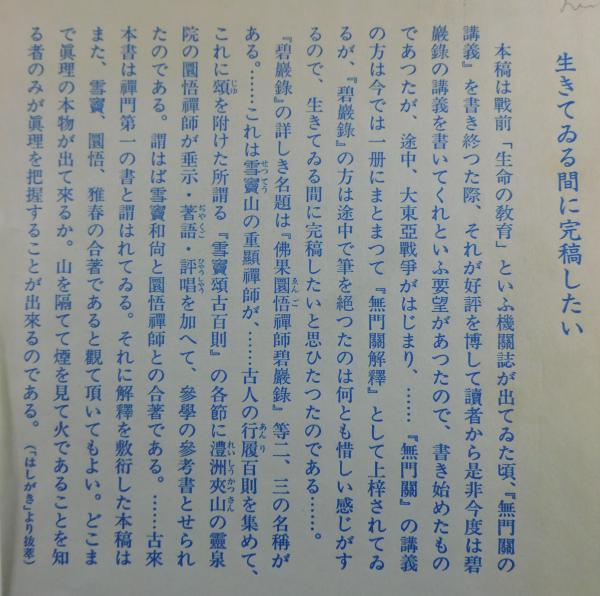 生きてゐる間に完稿したい
本稿は戰前「生命の教育」といふ機關誌が出てゐた頃、『無門關の
講義』を書き終つた際、それが好評を博して讀者から是非今度は碧
巖錄の講義を書いてくれといふ要望があつたので、書き始めたもの
であつたが、途中、大東亞戰爭がはじまり、……『無門關』の講義
の方は今では一册にまとまつて『無門關解釋』として上梓されてゐ
るが、『碧巖錄』の方は途中で筆を絶つたのは何とも惜しい感じがす
るので、生きてゐる間に完稿したいと思ひたつたのである……。
『碧巖錄』の詳しき名題は『佛果圜悟禪師碧巖錄』等二、三の名稱が
ある。……これは雪竇山の重顯禪師が、……古人の行履百則を集めて、
これに頌を附けた所謂る『雪竇頌古百則』の各節に澧洲夾山の靈泉
院の圜悟禪師が垂示・著語・評唱を加へて、參學の參考書とせられ
たのである。謂はば雪竇和尙と圜悟禪師との合著である。……古來
本書は禪門第一の書と謂はれてゐる。それに解釋を敷衍した本稿は
また、雪竇、圜悟、雅春の合著であると觀て頂いてもよい。どこま
で眞理の本物が出て來るか。山を隔てて煙を見て火であることを知
る者のみが眞理を把握することが出來るのである。（「はしがき」より抜萃）